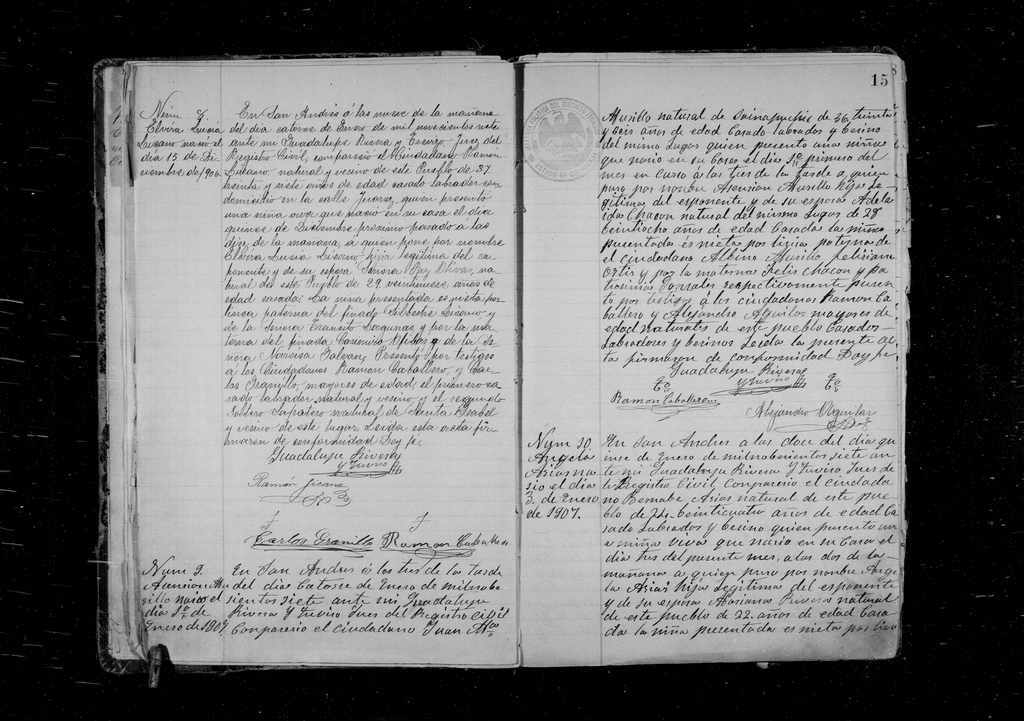 Núm 8.
Elvira Luisa
Lisano nació el
día 15 de Di-
ciembre de 1906.
En San Andrés á las nueve de la mañana
del día catorce de Enero de mil novecientos siete
ante mi Guadalupe Rivera y Treviño Juez del
Registro Civil, compareció el Ciudadano Ramon
Lisano natural y vecino de este Pueblo de 37
treinta y siete años de edad casado Labrador con
domicilio en la calle Juarez, quien presentó
una niña viva que nació en su casa el día
quince de Diciembre proximo pasado á las
diez de la mañana, á quien pone por nombre
Elvira Luisa Lisano hija legitima del es-
ponente y de su esposa Señora Paz Olivas, na-
tural de este Pueblo de 29 veintinueve años de
edad casada: La niña presentada es nieta por
linea paterna del finado Lisano y
de la Señora Tránsito Lagunas y por la ma-
terna del finado y de la Se-
ñora Narcisa Galvan, Presentó por testigos
a los Ciudadanos Ramon Caballero, y Car-
los Granillo, mayores de edad, el primero ca-
sado labrador natural y vecino y el segundo
soltero Zapatero natural de Santa Isabel
y vecino de este lugar. Leida esta acta fir-
maron de conformidad Doy fe.
Guadalupe Rivera
y Treviño
Ramón
Carlos Granillo Ramon Caballero
Num 9.
Asencion Mu-
rillo nació el
día 1º de
Enero de 1907.
En San Andres á las tres de la tarde
del dia Catorce de Enero de milnobe-
sientos siete ante mi Guadalupe
Rivera y Treviño Jues del Registro Civil
Conparesio el ciudadano Juan Mª
15
Murillo natural de de 36 treinta
y seis años de edad Casado labrador y becino
del mismo Lugar quien presento una niña
que nacio en su Casa el dia 1º primero del
mes en Curso á las tres de la tarde a quien
puso por nonbre Asension Murillo hija Le-
gitima del exponente y de su esposa Adela
ida Chacon natural del mismo Lugar de 28
beintiocho años de edad Casada la niña
presentada es nieta por linia paterna de
el ciudadano Albino Murillo
Ortis y por la materna Felis Chacon y
Gonsales respectivamente presen
to por testigos á los ciudadanos Ramon Ca
ballero y Alejandro Aguilar mayores de
edad naturales de este pueblo Casados
Labradores y becinos Leida la presente ac
ta firmaron de conformidad Doy fe.
Guadalupe Rivera
y Treviño
Ramon Caballero
Alejandro Aguilar
Num 10
Angela
Arias na-
sio el dia
3. de Enero
de 1907.
En San Andres a las doce del dia qu
ince de Enero de milnobesientos siete an
te mi Guadalupe Rivera y Treviño Jues de
l Registro Civil Conparesio el ciudada
no Bernabe Arias natural de este pue
blo de 24 beinticuatro años de edad Ca
sado Labrador y becino quien presento un
a niña viva que nacio en su Casa el
dia tres del presente mes, a las dos de la
mañana a quien puso por nonbre Ange
la Arias hija Legitima del exponente
y de su esposa Mariana Rivera natural
de este pueblo de 22 años de edad Casa
da la niña presentada es nieta por linia